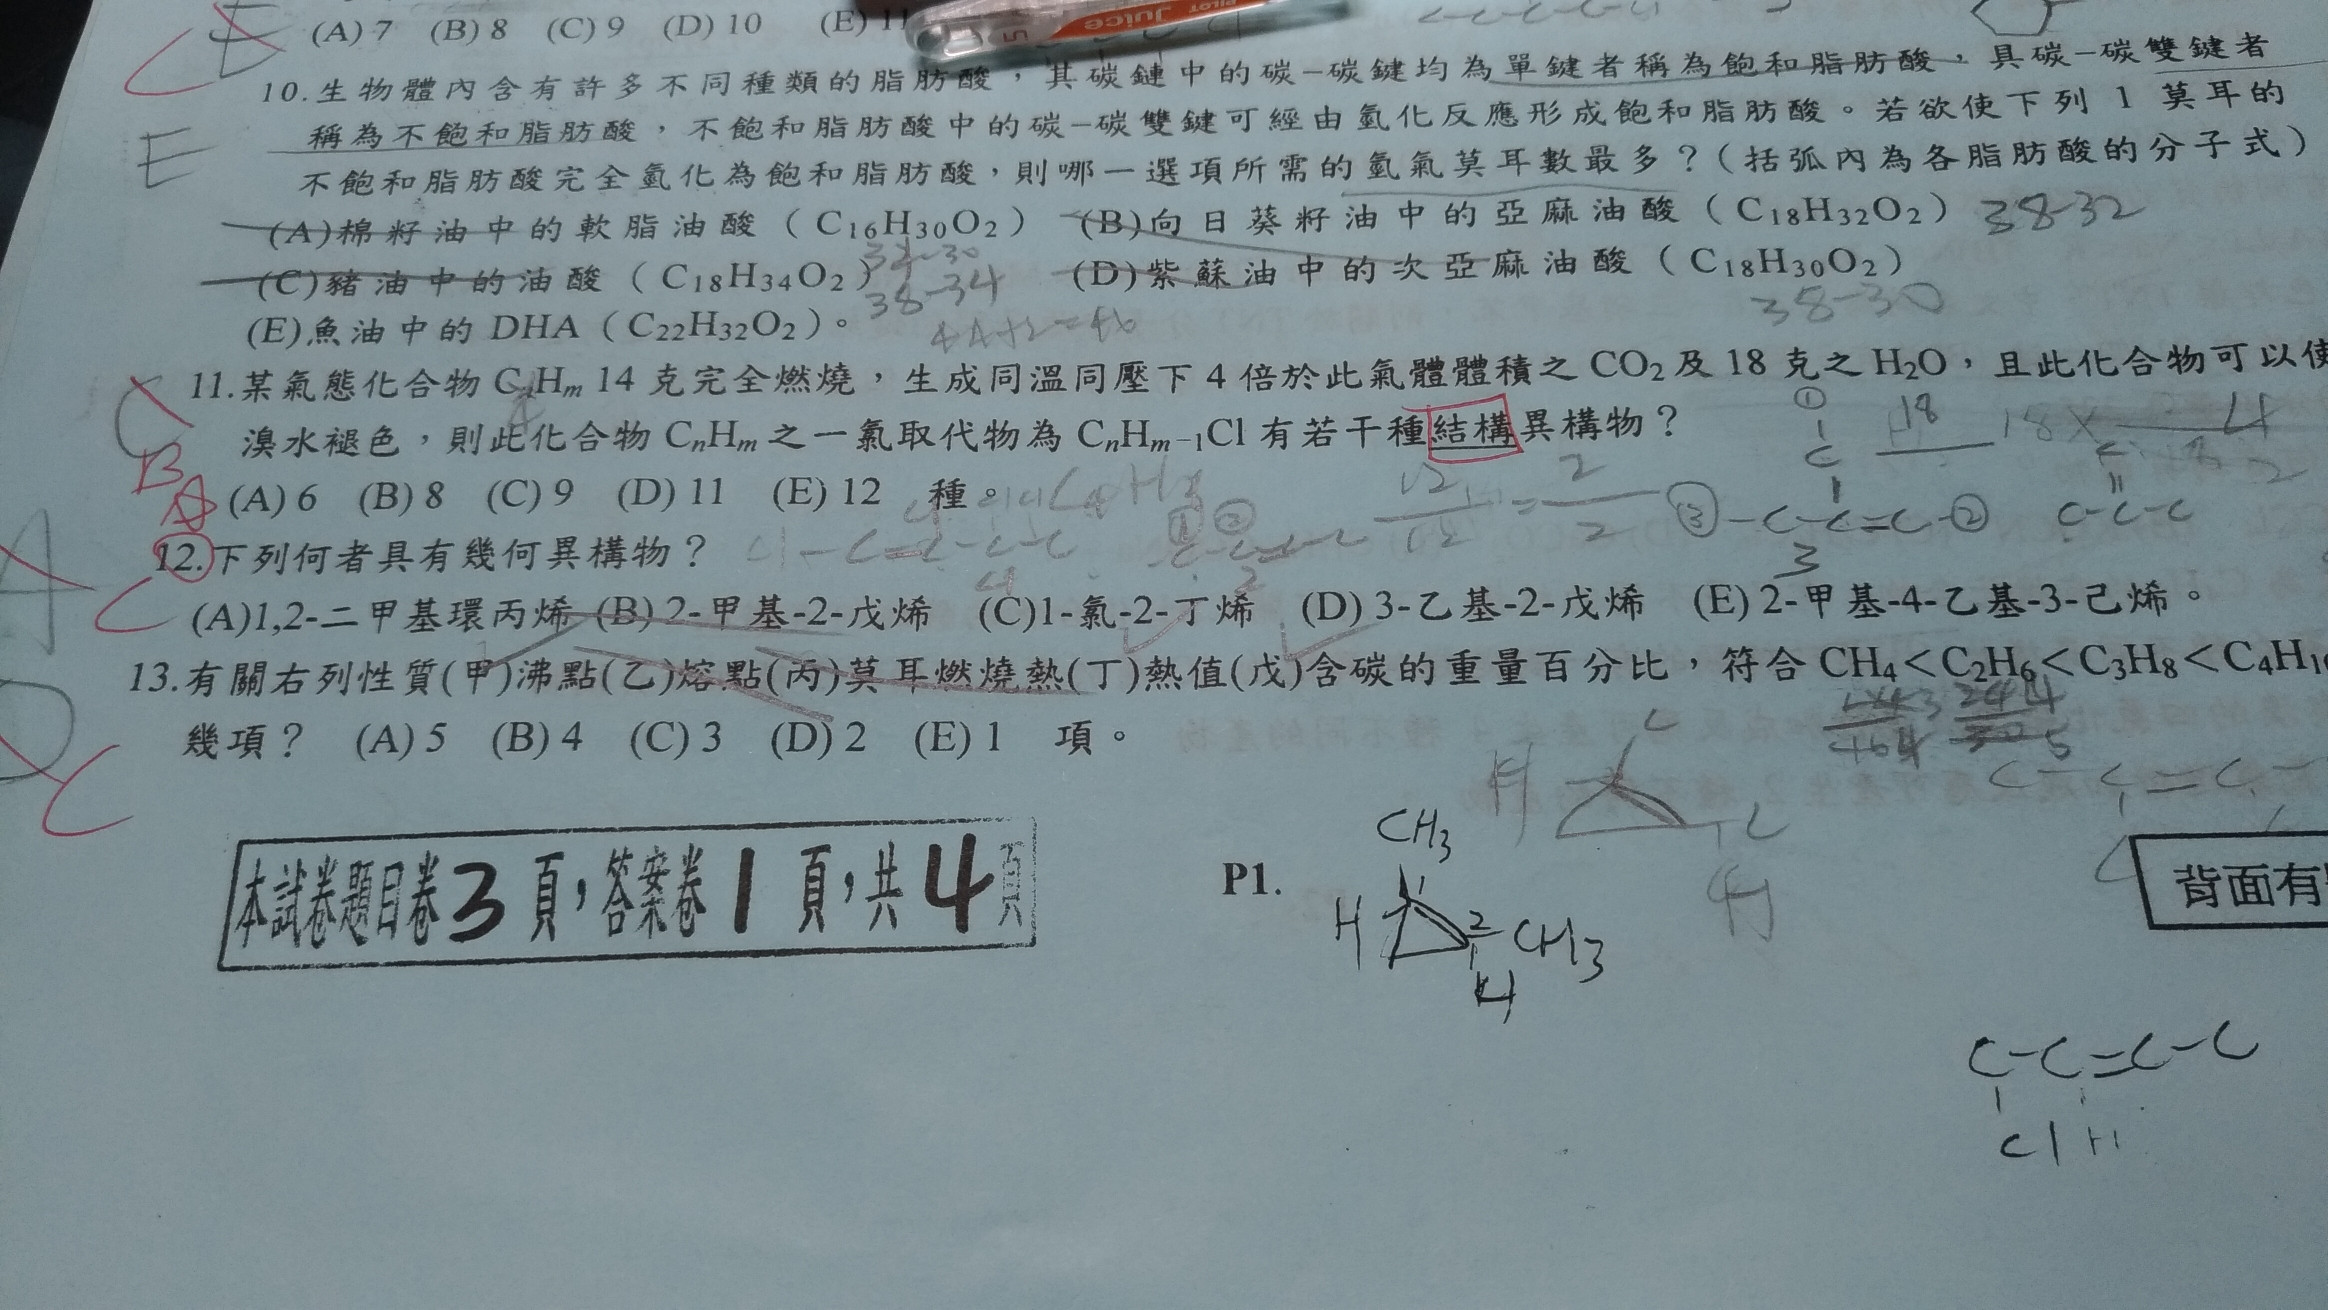 (A) 7 (B) 8 (C) 9 (D) 10 (E) 11
Juice
E
10.生物體內含有許多不同種類的脂肪酸，其碳鏈中的碳–碳鍵均為單鍵者稱為飽和脂肪酸，具碳–碳雙鍵者
稱為不飽和脂肪酸，不飽和脂肪酸中的碳–碳雙鍵可經由氫化反應形成飽和脂肪酸。若欲使下列 1 莫耳的
不飽和脂肪酸完全氫化為飽和脂肪酸，則哪一選項所需的氫氣莫耳數最多？（括弧內為各脂肪酸的分子式）
(A)棉籽油中的軟脂油酸（C16H30O2） (B)向日葵籽油中的亞麻油酸（C18H32O2） 38-32
(C)豬油中的油酸（C18H34O2） (D)紫蘇油中的次亞麻油酸（C18H30O2）
38-34 38-30
(E)魚油中的 DHA（C22H32O2）。 44+2=46
11.某氣態化合物 CnHm 14 克完全燃燒，生成同溫同壓下 4 倍於此氣體體積之 CO2 及 18 克之 H2O，且此化合物可以使
溴水褪色，則此化合物 CnHm 之一氯取代物為 CnHm−1Cl 有若干種結構異構物？
B
A (A) 6 (B) 8 (C) 9 (D) 11 (E) 12 種。
③-C-C=C-②
12.下列何者具有幾何異構物？
A
C (A)1,2-二甲基環丙烯 (B) 2-甲基-2-戊烯 (C)1-氯-2-丁烯 (D) 3-乙基-2-戊烯 (E) 2-甲基-4-乙基-3-己烯。
13.有關右列性質(甲)沸點(乙)熔點(丙)莫耳燃燒熱(丁)熱值(戊)含碳的重量百分比，符合 CH4＜C2H6＜C3H8＜C4H10
D
C 幾項？ (A) 5 (B) 4 (C) 3 (D) 2 (E) 1 項。
本試卷題目卷3頁，答案卷1頁，共4頁
P1.
CH3
H CH3
H
背面有
C-C=C-C
Cl H